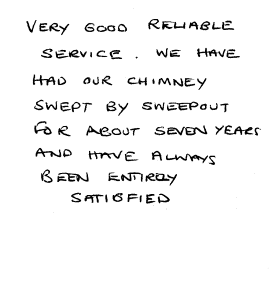 VERY GOOD RELIABLE
SERVICE. WE HAVE
HAD OUR CHIMNEY
SWEPT BY SWEEPOUT
FOR ABOUT SEVEN YEARS
AND HAVE ALWAYS
BEEN ENTIRELY
SATISFIED